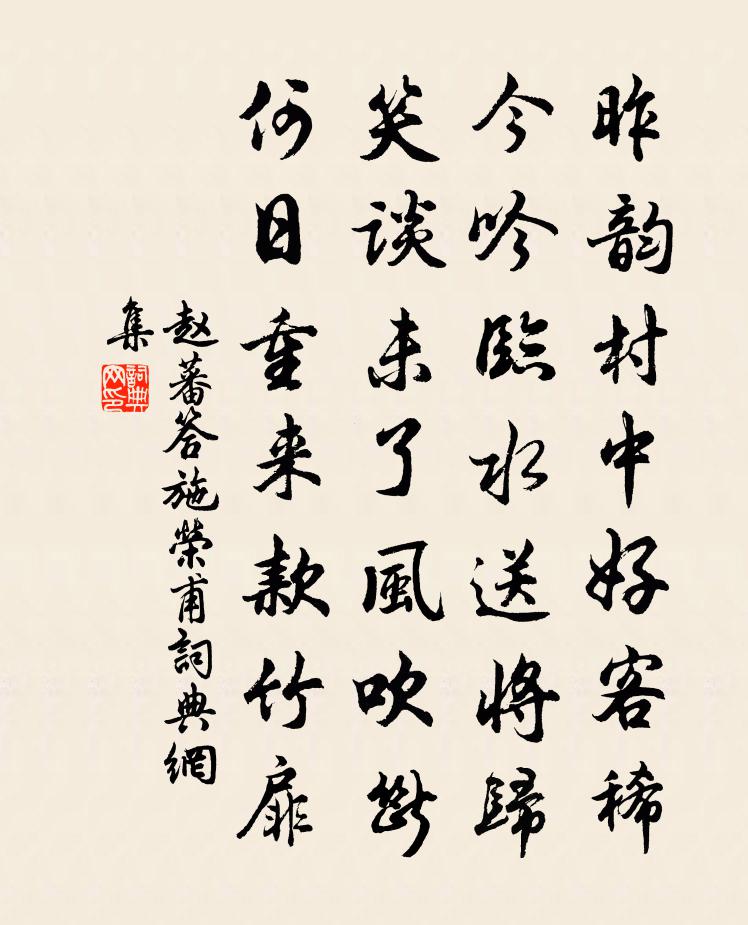 昨韵村中好客稀
今吟臨水送將歸
笑談未了風吹斷
何日重来款竹扉
赵蕃答施榮甫詞典網
集
詞典
网印